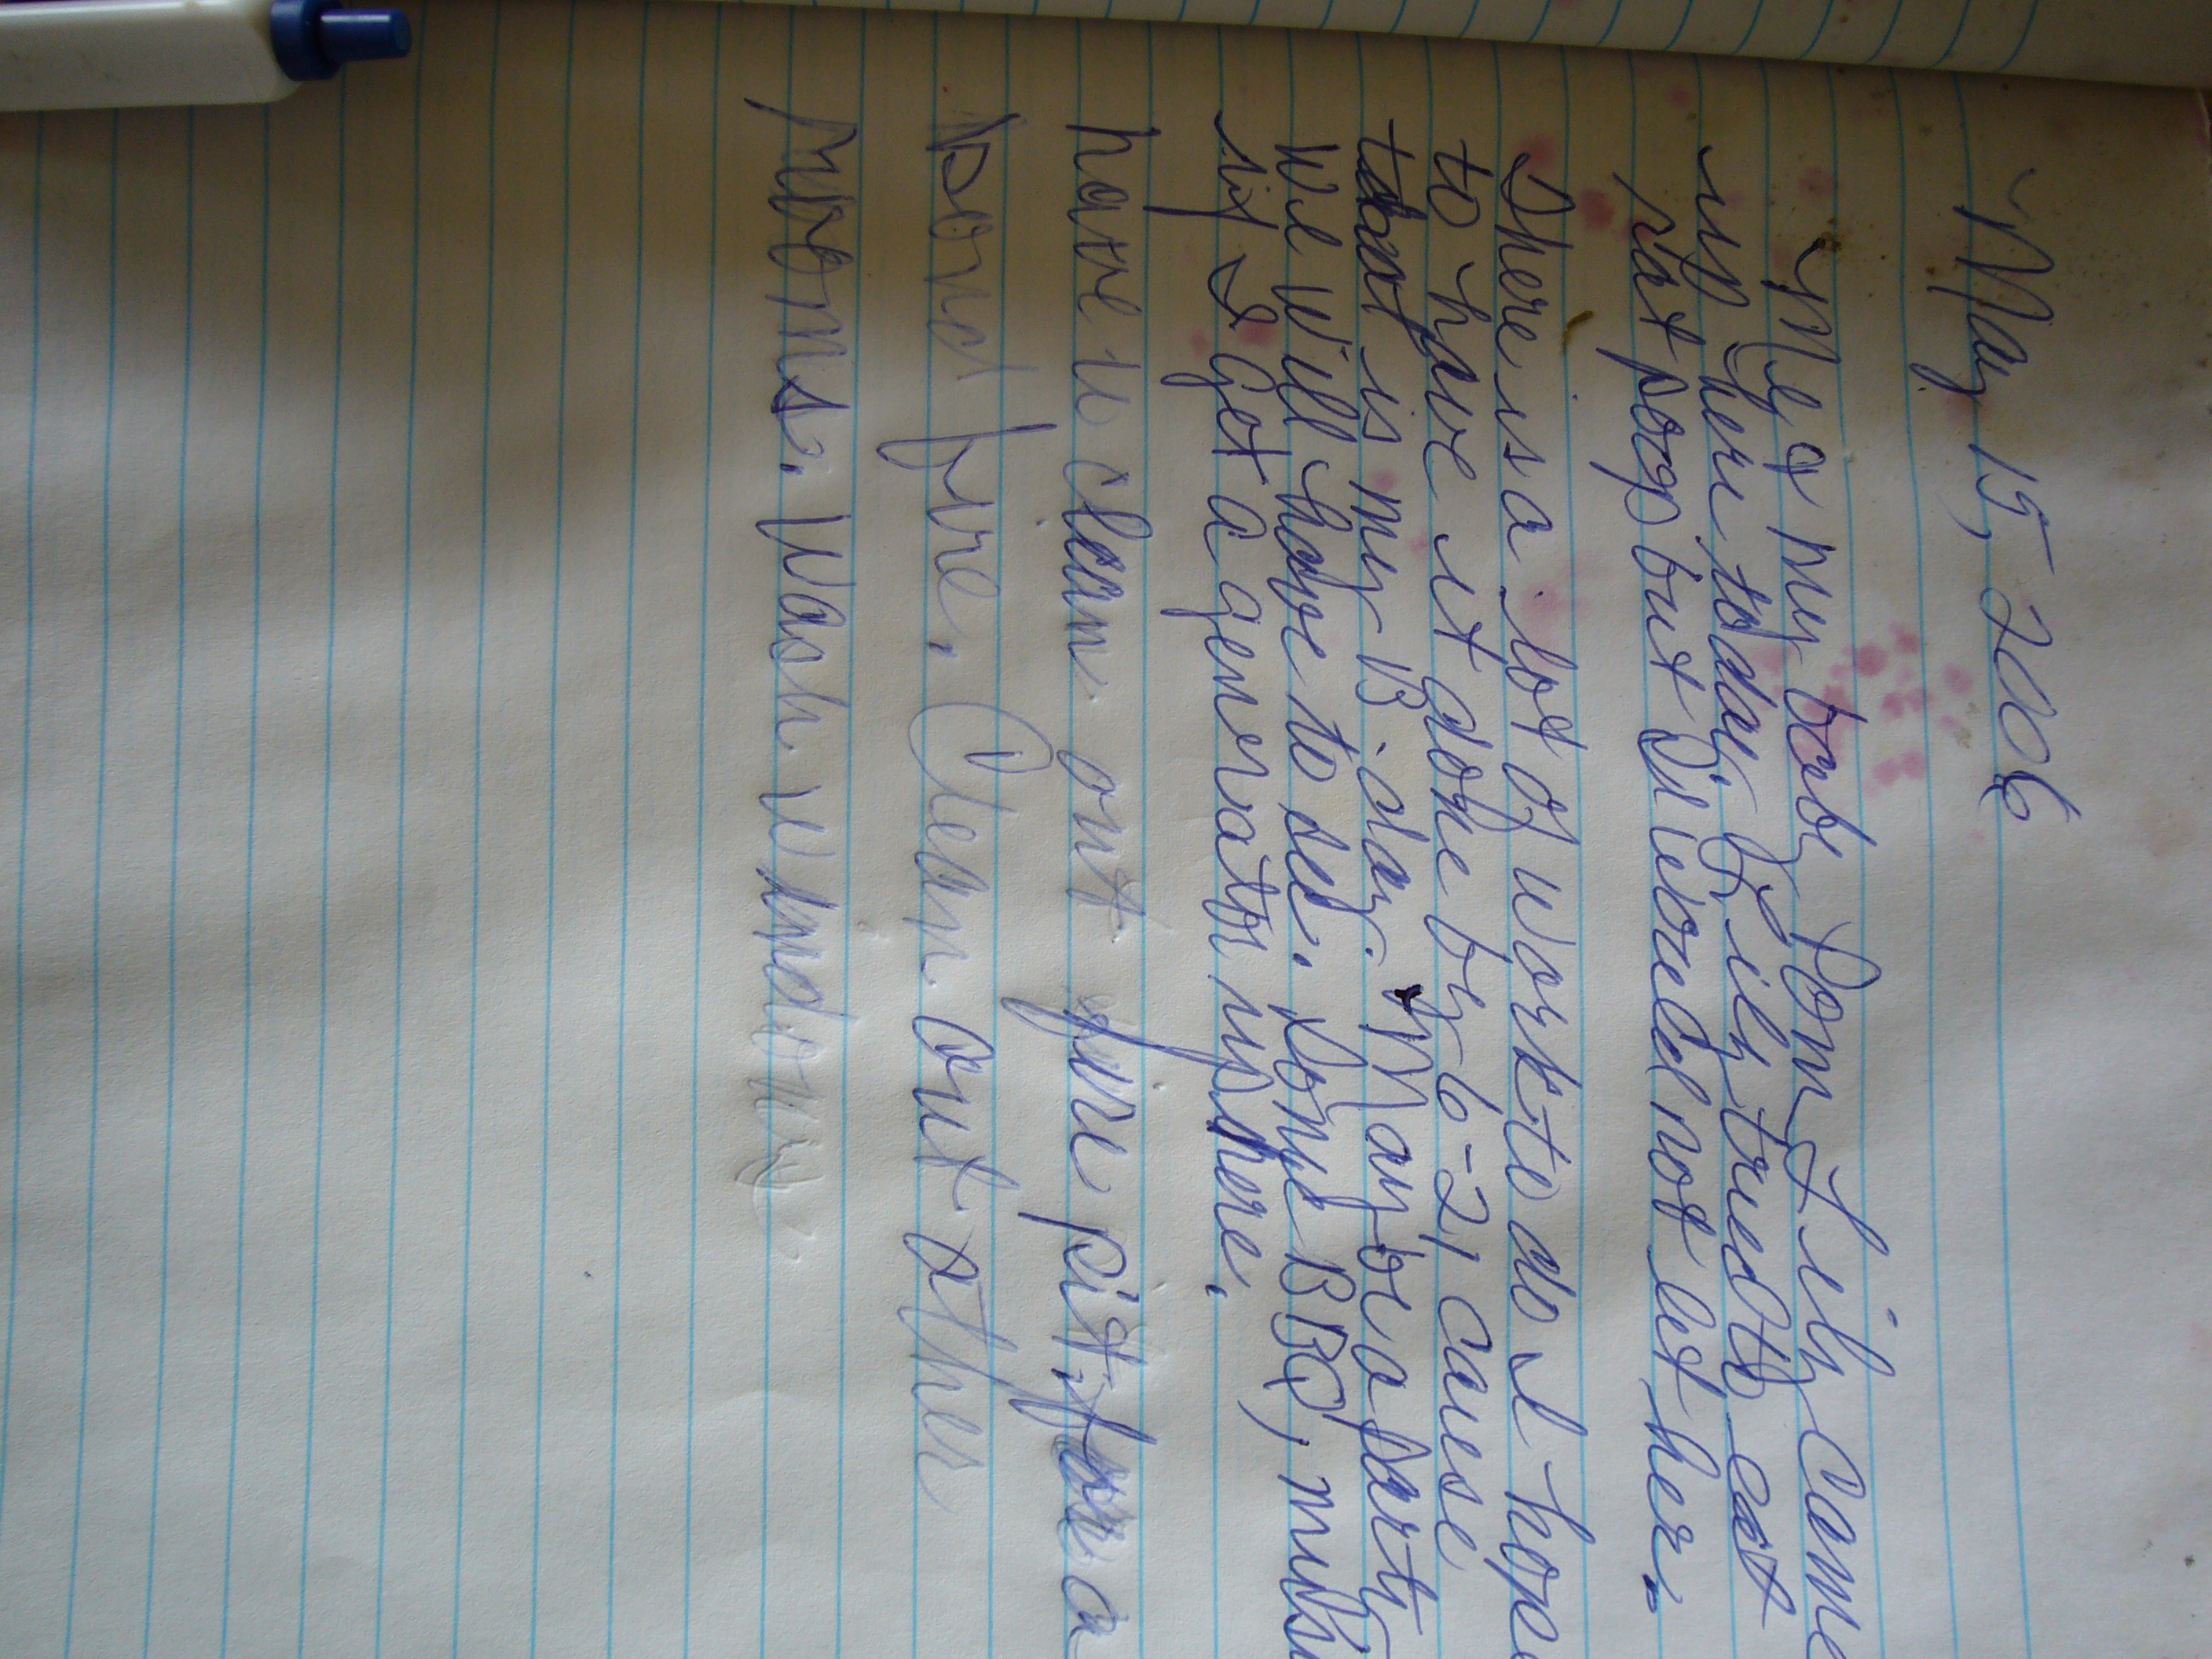 May 15, 2006
Me & my baby Pom Lily came
up here today. Lily tried to eat
rat poop but I would not let her.
There is a lot of work to do I hope
to have it done by 6-21, cause
that is my B-day. Maybe a party
we will have to see. Some BBQ, music
if I get a generator up here.
have u clean out fire pit. for a
Bond fire. Clean out other
rooms. Wash windows